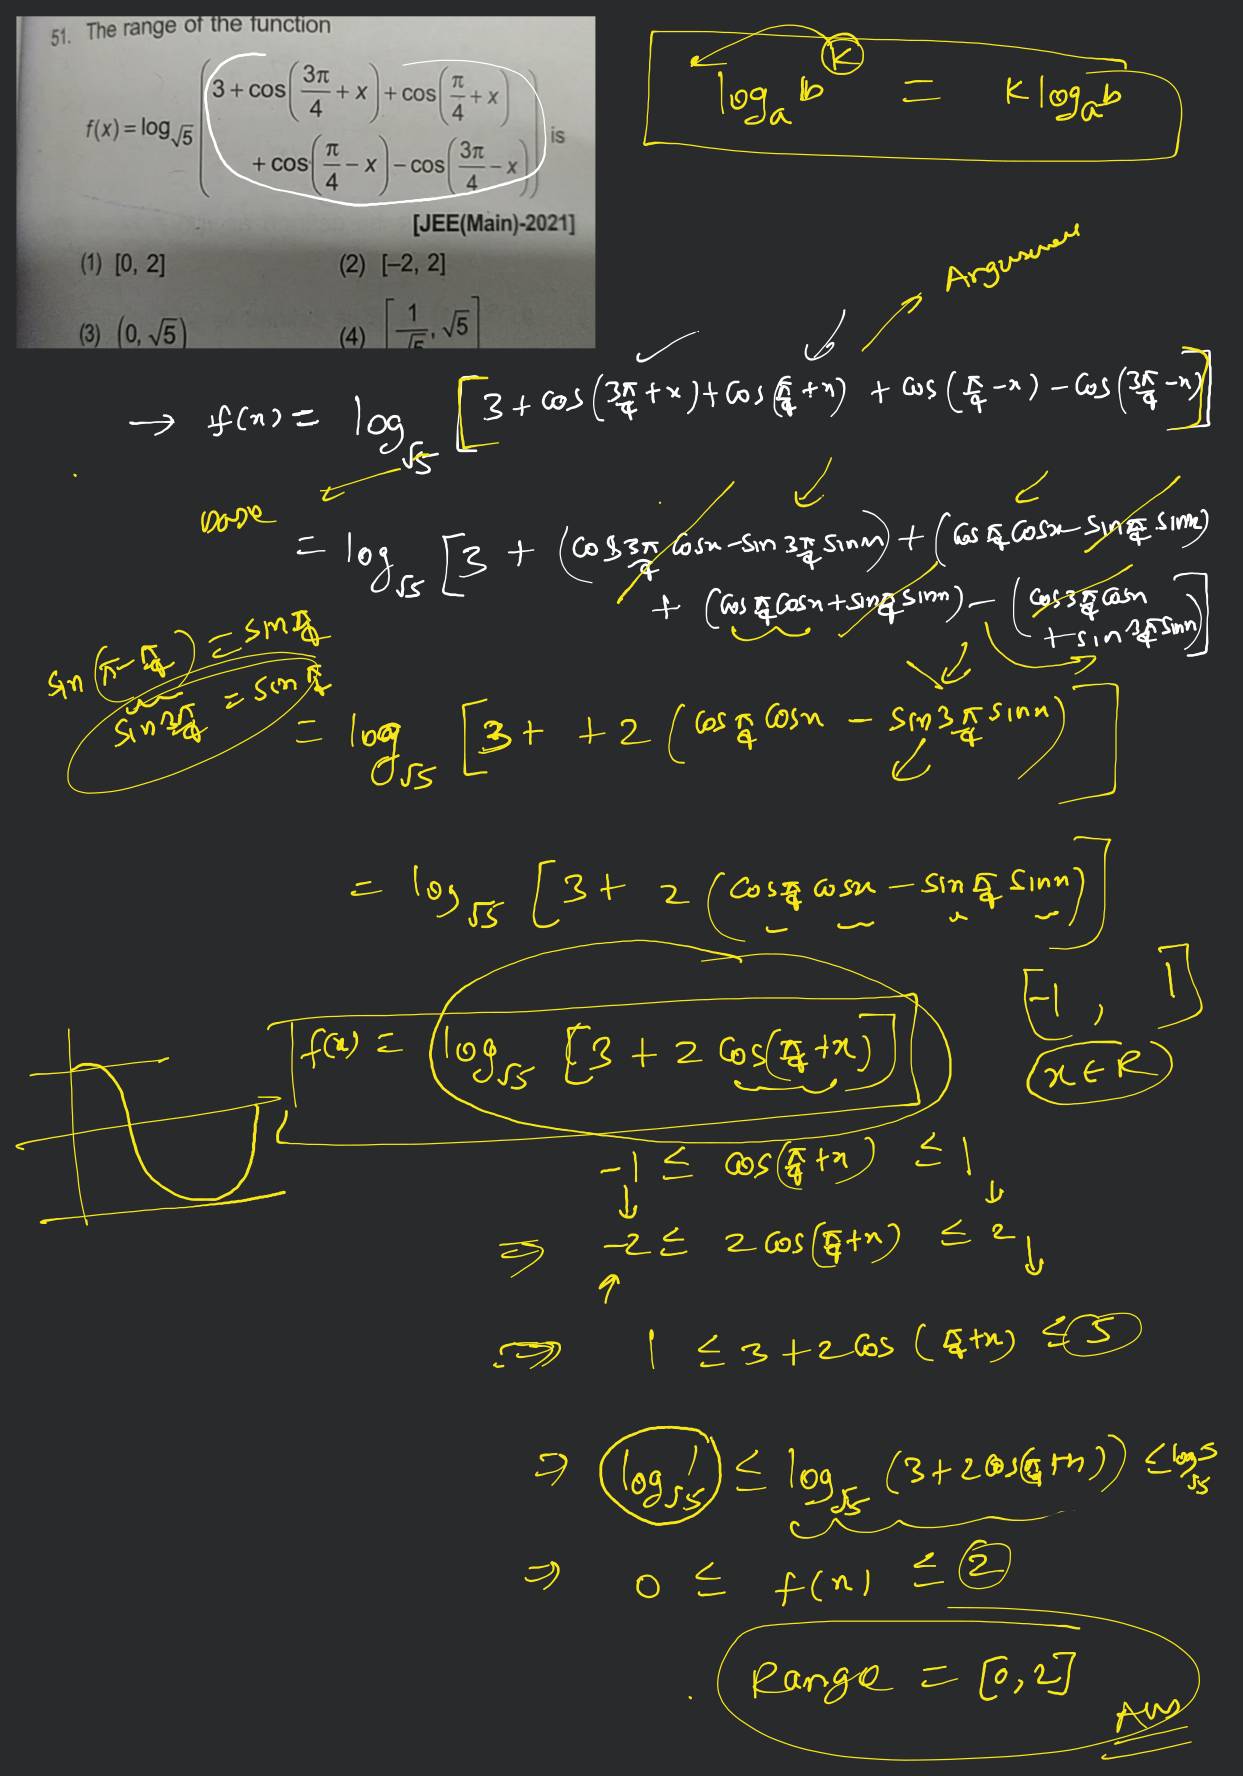 51. The range of the function
f(x) = log_√5 (3 + cos(3π/4 + x) + cos(π/4 + x)
+ cos(π/4 − x) − cos(3π/4 − x)) is
[JEE(Main)-2021]
(1) [0, 2] (2) [−2, 2]
(3) (0, √5) (4) [1/√5, √5]
log_a b^K = K log_a b
Argument
→ f(x) = log_√5 [3 + cos(3π/4 + x) + cos(π/4 + x) + cos(π/4 − x) − cos(3π/4 − x)]
base
= log_√5 [3 + (cos 3π/4 cosx − sin 3π/4 sinx) + (cos π/4 cosx − sin π/4 sinx)
+ (cos π/4 cosx + sin π/4 sinx) − (cos 3π/4 cosx + sin 3π/4 sinx)]
sin(π − π/4) = sin π/4
sin 3π/4 = sin π/4
= log_√5 [3 + + 2 (cos π/4 cosx − sin 3π/4 sinx)]
= log_√5 [3 + 2 (cos π/4 cosx − sin π/4 sinx)]
[-1, 1]
f(x) = log_√5 [3 + 2 cos(π/4 + x)]
x ∈ R
-1 ≤ cos(π/4 + x) ≤ 1
⇒ -2 ≤ 2 cos(π/4 + x) ≤ 2
⇒ 1 ≤ 3 + 2 cos(π/4 + x) ≤ 5
⇒ log_√5 1 ≤ log_√5 (3 + 2 cos(π/4 + x)) ≤ log_√5 5
⇒ 0 ≤ f(x) ≤ 2
Range = [0, 2]
Ans